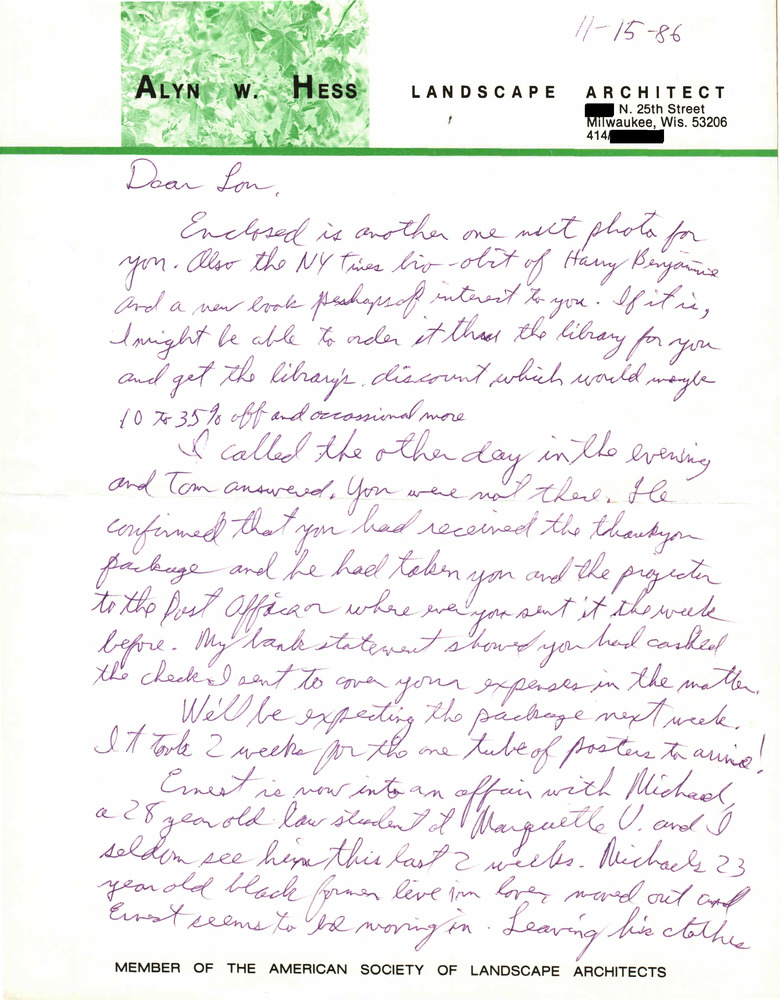 11-15-86
ALYN W. HESS LANDSCAPE ARCHITECT
N. 25th Street
Milwaukee, Wis. 53206
414/
Dear Lou,
Enclosed is another one nsct photo for
you. Also the NY Times bio-obit of Harry Benjamin
and a new book perhaps of interest to you. If it is,
I might be able to order it thru the library for you
and get the library's discount which would maybe
10 to 35% off and occassional more
I called the other day in the evening
and Tom answered. You were not there. He
confirmed that you had received the thankyou
package and he had taken you and the projector
to the Post Office or where ever you sent it the week
before. My bank statement showed you had cashed
the check I sent to cover your expenses in the matter.
We'll be expecting the package next week.
It took 2 weeks for the one tube of posters to arrive!
Ernest is now into an affair with Michael,
a 28 year old law student at Marquette U. and I
seldom see him this last 2 weeks. Michaels 23
year old black former live in lover moved out and
Ernest seems to be moving in. Leaving his clothes
MEMBER OF THE AMERICAN SOCIETY OF LANDSCAPE ARCHITECTS